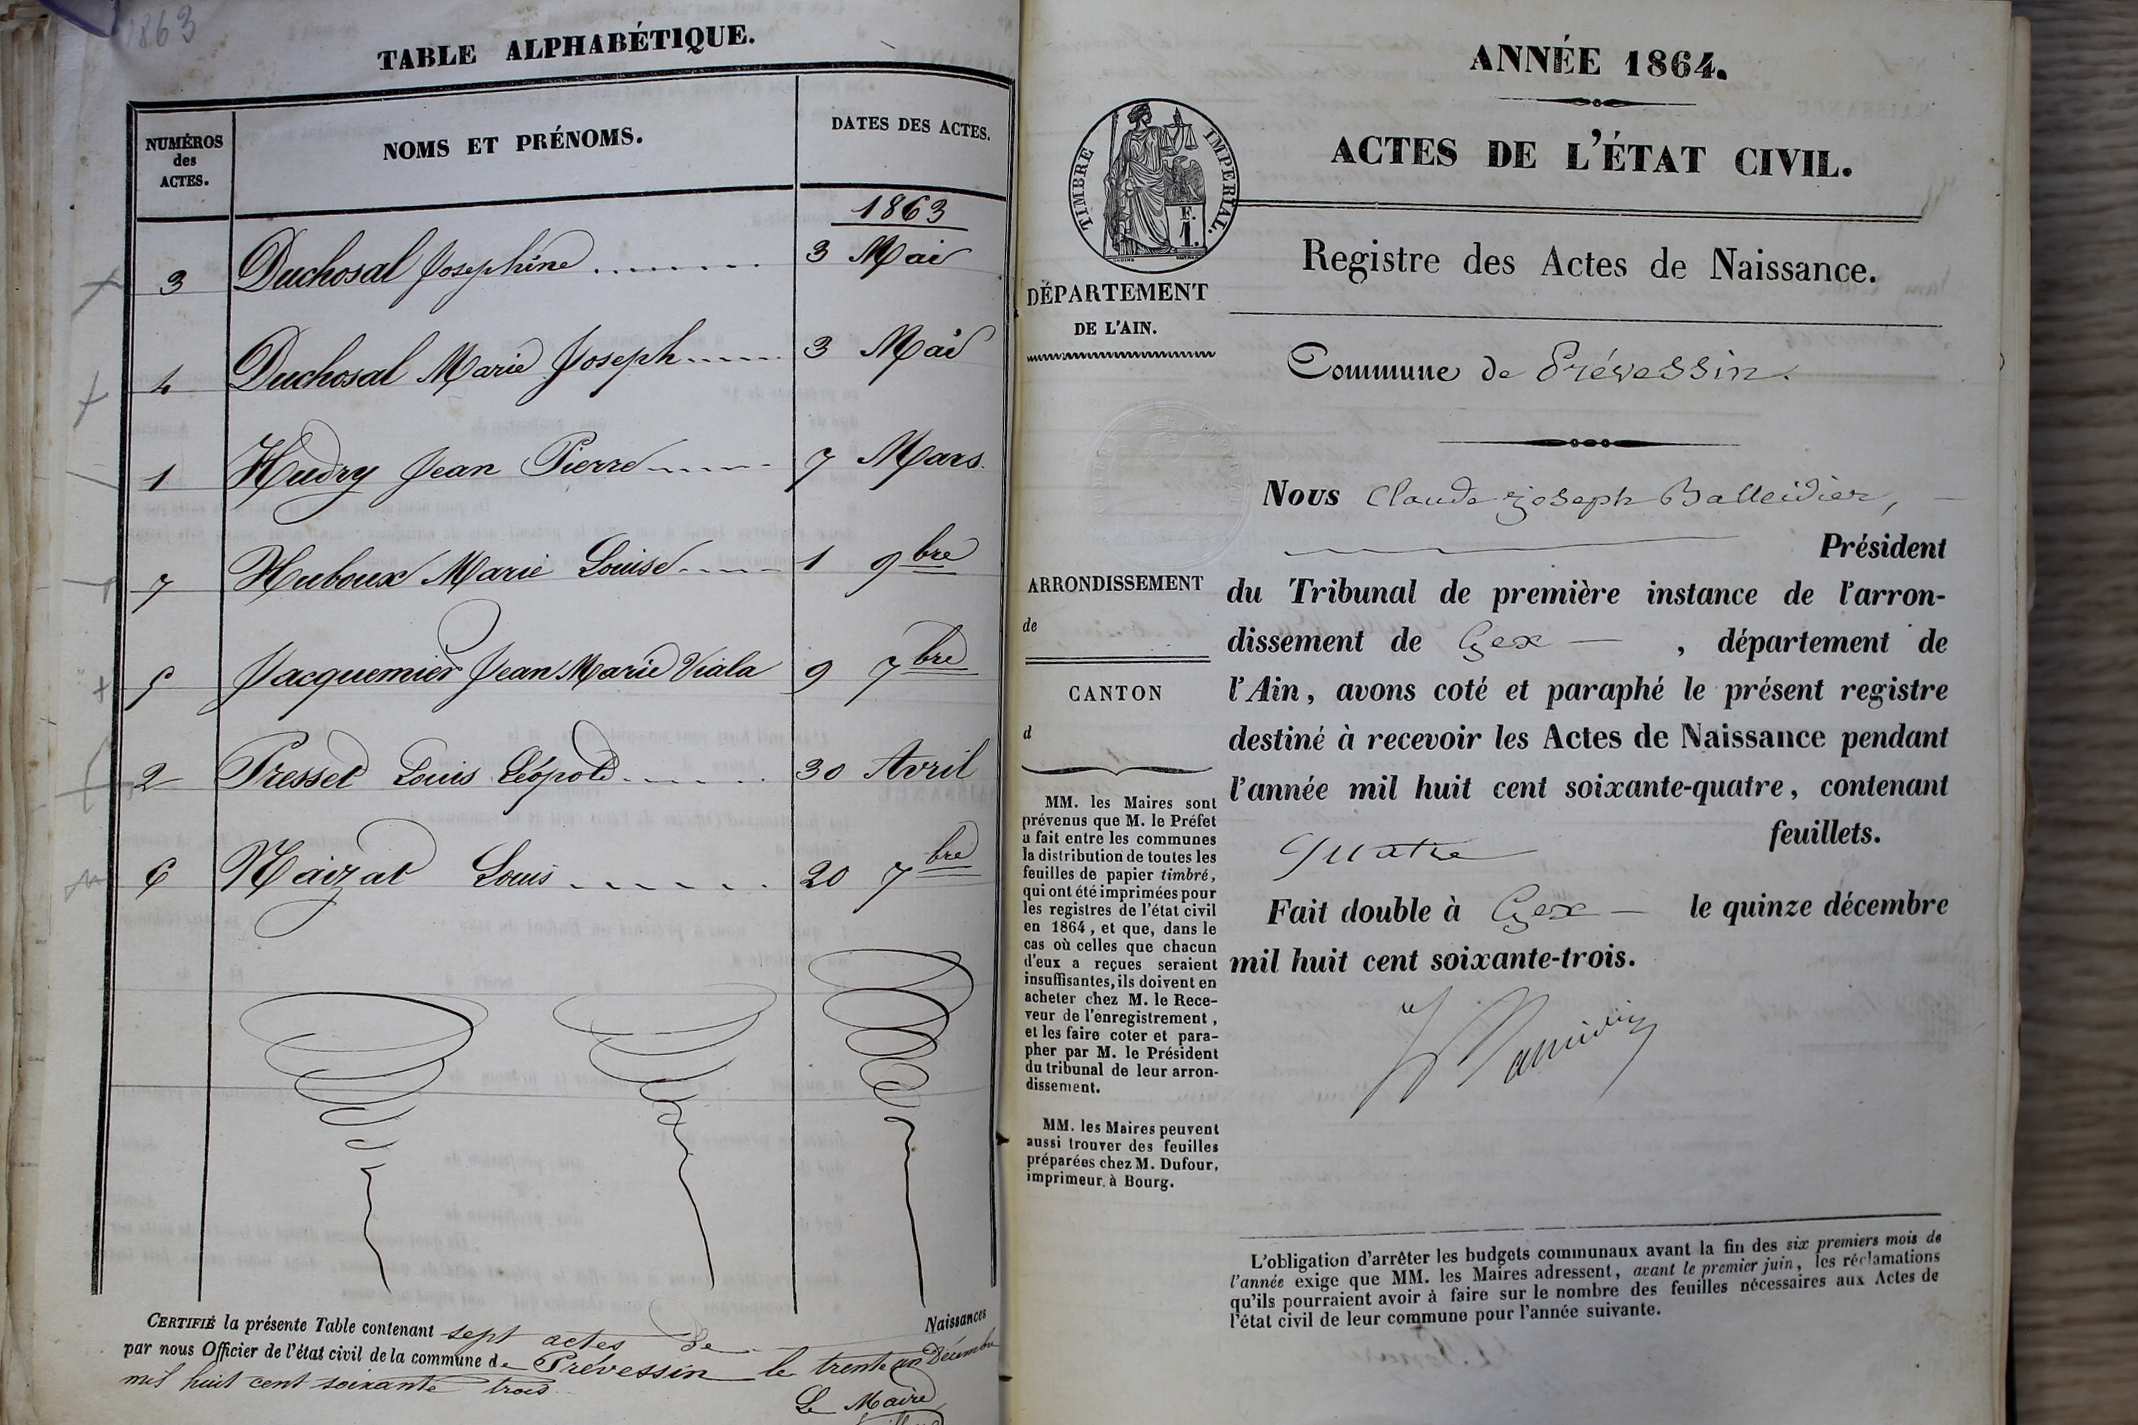 1863
TABLE ALPHABÉTIQUE.
NUMÉROS
des
ACTES.
NOMS ET PRÉNOMS.
DATES DES ACTES.
1863
3 Duchosal Joséphine 3 Mai
4 Duchosal Marie Joseph 3 Mai
1 Hudry Jean Pierre 7 Mars
7 Huboux Marie Louise 1 9bre
5 Jacquemier Jean Marie Viala 9 7bre
2 Presset Louis Léopold 30 Avril
6 Naizat Louis 20 7bre
CERTIFIÉ la présente Table contenant sept actes de Naissances
par nous Officier de l'état civil de la commune de Prévessin le trente un Décembre
mil huit cent soixante trois
Le Maire
ANNÉE 1864.
ACTES DE L'ÉTAT CIVIL.
TIMBRE IMPERIAL.
F.
1.
Registre des Actes de Naissance.
DÉPARTEMENT
DE L'AIN.
Commune de Prévessin.
ARRONDISSEMENT
de
CANTON
d
MM. les Maires sont
prévenus que M. le Préfet
a fait entre les communes
la distribution de toutes les
feuilles de papier timbré,
qui ont été imprimées pour
les registres de l'état civil
en 1864, et que, dans le
cas où celles que chacun
d'eux a reçues seraient
insuffisantes, ils doivent en
acheter chez M. le Rece-
veur de l'enregistrement,
et les faire coter et para-
pher par M. le Président
du tribunal de leur arron-
dissement.
MM. les Maires peuvent
aussi trouver des feuilles
préparées chez M. Dufour,
imprimeur, à Bourg.
Nous Claude Joseph Balleidier,
Président
du Tribunal de première instance de l'arron-
dissement de Gex, département de
l'Ain, avons coté et paraphé le présent registre
destiné à recevoir les Actes de Naissance pendant
l'année mil huit cent soixante-quatre, contenant
quatre feuillets.
Fait double à Gex le quinze décembre
mil huit cent soixante-trois.
L'obligation d'arrêter les budgets communaux avant la fin des six premiers mois de
l'année exige que MM. les Maires adressent, avant le premier juin, les réclamations
qu'ils pourraient avoir à faire sur le nombre des feuilles nécessaires aux Actes de
l'état civil de leur commune pour l'année suivante.